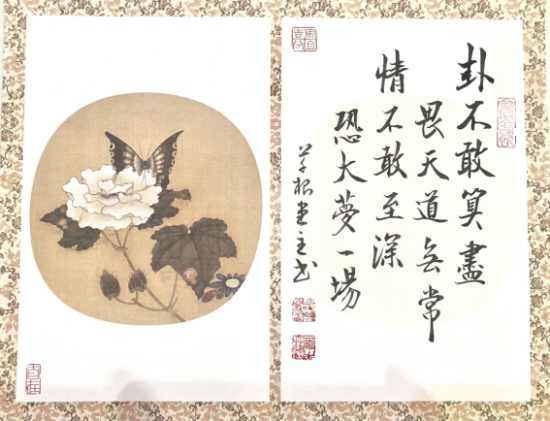 卦不敢算盡
畏天道無常
情不敢至深
恐大夢一場
草根堂主书